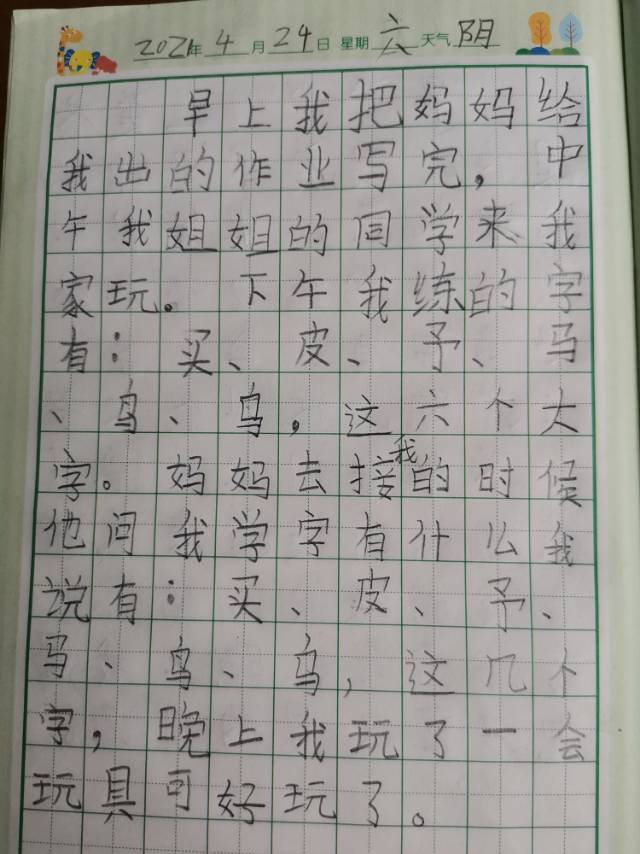 2021年4月24日 星期六 天气阴
早上我把妈妈给
我出的作业写完，中
午我姐姐的同学来我
家玩。下午我练的字
有：买、皮、予、马
、鸟、乌，这六个大
字。妈妈去接我的时候
他问我学字有什么我
说有：买、皮、予、
马、鸟、乌，这几个
字，晚上我玩了一会
玩具可好玩了。